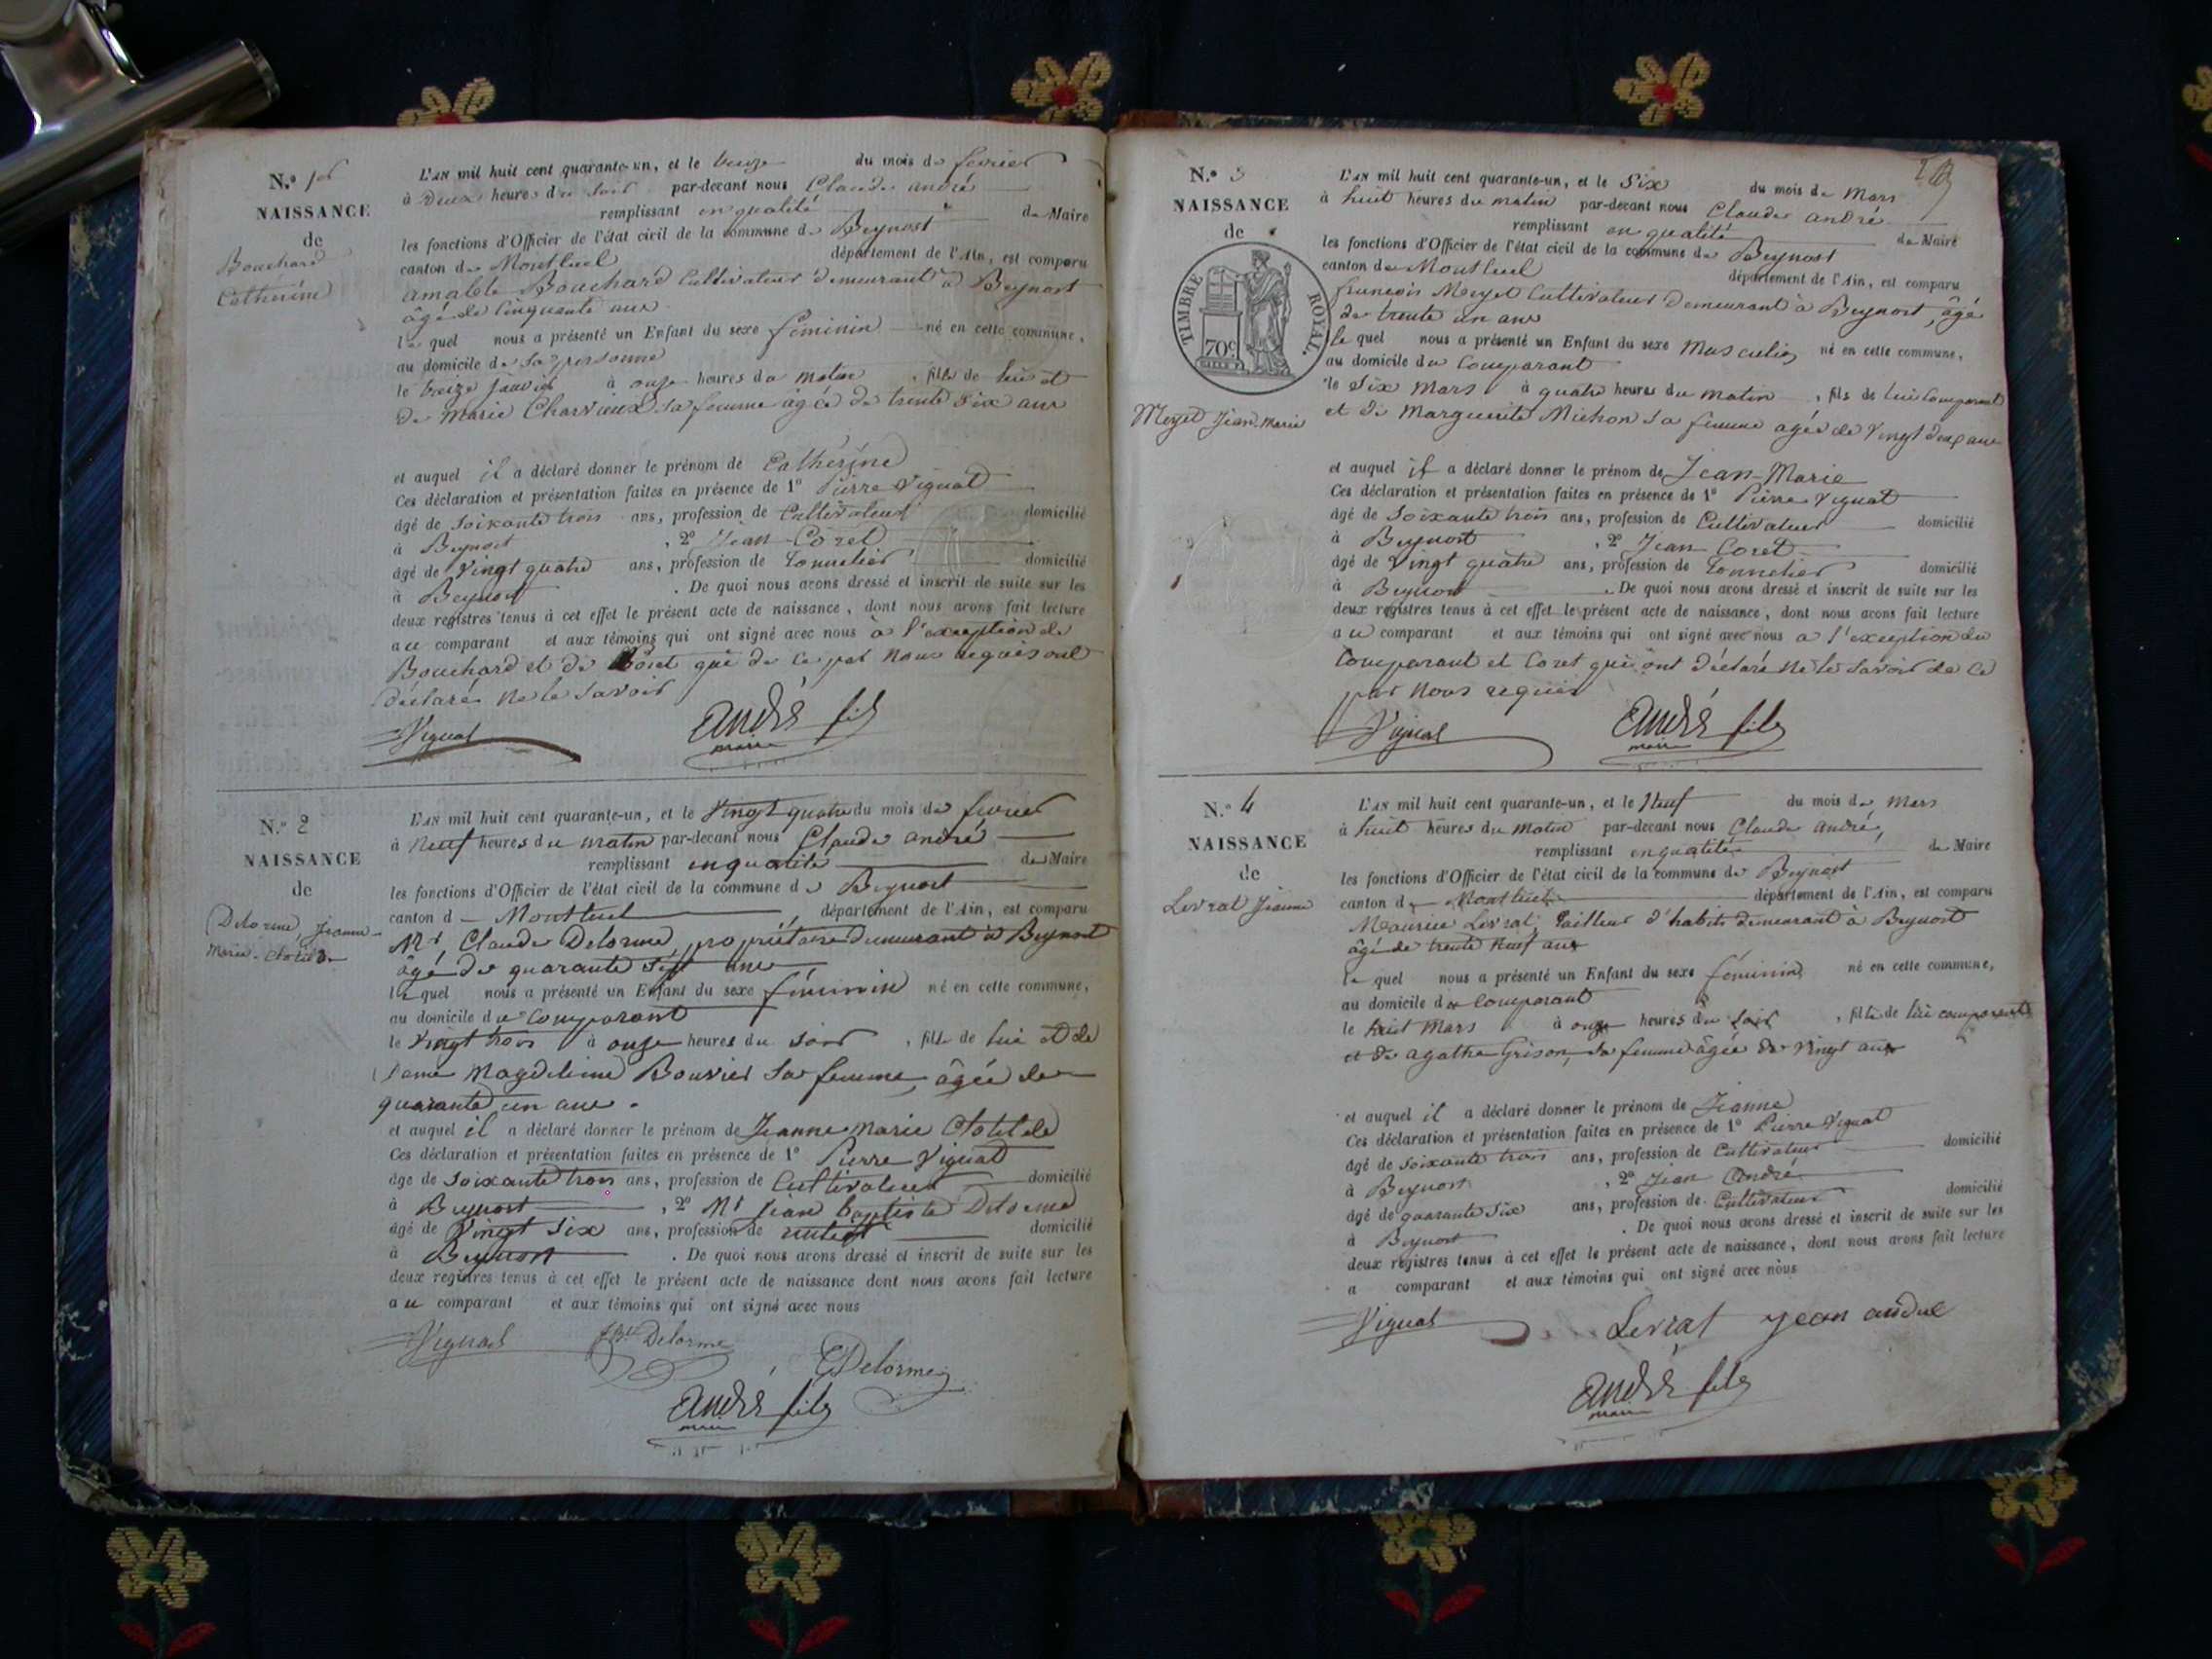 N.º 1er
NAISSANCE
de
Bouchard
Catherine
L'AN mil huit cent quarante-un, et le treize du mois de fevrier
à Deux heures du soir par-devant nous Claude andré
remplissant en qualité de Maire
les fonctions d'Officier de l'état civil de la commune de Beynost
canton de Montluel département de l'Ain, est comparu
amable Bouchard Cultivateur demeurant à Beynost
âgé de Cinquante ans
le quel nous a présenté un Enfant du sexe féminin né en cette commune,
au domicile de sa personne
le treize à onze heures du matin , fille de lui et
de Marie Charvieux sa femme agée de trente six ans
et auquel il a déclaré donner le prénom de Catherine
Ces déclaration et présentation faites en présence de 1º Pierre Vignat
âgé de soixante trois ans, profession de Cultivateur domicilié
à Beynost , 2º Jean Coret
âgé de vingt quatre ans, profession de Tonnelier domicilié
à Beynost . De quoi nous avons dressé et inscrit de suite sur les
deux registres tenus à cet effet le présent acte de naissance, dont nous avons fait lecture
au comparant et aux témoins qui ont signé avec nous à l'exception de
Bouchard et de Coret qui de ce par nous requis ont
déclaré ne le savoir
Vignat André fils
maire
N.º 2
NAISSANCE
de
Delorme Jeanne-
Marie-Clotilde
L'AN mil huit cent quarante-un, et le Vingt quatre du mois de fevrier
à Neuf heures du matin par-devant nous Claude andré
remplissant en qualité de Maire
les fonctions d'Officier de l'état civil de la commune de Beynost
canton d Montluel département de l'Ain, est comparu
Mr. Claude Delorme, propriétaire demeurant à Beynost
âgé de quarante sept ans
le quel nous a présenté un Enfant du sexe féminin né en cette commune,
au domicile du comparant
le vingt trois à onze heures du soir , fille de lui et de
Dame Magdeleine Bouvier sa femme, âgée de
quarante un ans.
et auquel il a déclaré donner le prénom de Jeanne Marie Clotilde
Ces déclaration et présentation faites en présence de 1º Pierre Vignat
âgé de soixante trois ans, profession de Cultivateur domicilié
à Beynost , 2º Mr Jean baptiste Delorme
âgé de Vingt six ans, profession de rentier domicilié
à Beynost . De quoi nous avons dressé et inscrit de suite sur les
deux registres tenus à cet effet le présent acte de naissance dont nous avons fait lecture
au comparant et aux témoins qui ont signé avec nous
Vignat JBte Delorme
CDelorme
André fils
maire
N.º 3
NAISSANCE
de
TIMBRE ROYAL.
70c
Meyet Jean-Marie
L'AN mil huit cent quarante-un, et le Six du mois de Mars
à huit heures du matin par-devant nous Claude andré
remplissant en qualité de Maire
les fonctions d'Officier de l'état civil de la commune de Beynost
canton de Montluel département de l'Ain, est comparu
francois Meyet Cultivateur demeurant à Beynost, âgé
de trente un ans
le quel nous a présenté un Enfant du sexe Masculin né en cette commune,
au domicile du comparant
le Six Mars à quatre heures du matin , fils de lui comparant
et de Marguerite Michon sa femme agée de vingt deux ans
et auquel il a déclaré donner le prénom de Jean-Marie
Ces déclaration et présentation faites en présence de 1º Pierre Vignat
âgé de Soixante trois ans, profession de Cultivateur domicilié
à Beynost , 2º Jean Coret
âgé de Vingt quatre ans, profession de Tonnelier domicilié
à Beynost . De quoi nous avons dressé et inscrit de suite sur les
deux registres tenus à cet effet le présent acte de naissance, dont nous avons fait lecture
au comparant et aux témoins qui ont signé avec nous a l'exception du
comparant et Coret qui ont déclaré ne le savoir de ce
par nous requis
Vignat André fils
maire
N.º 4
NAISSANCE
de
Levrat Jeanne
L'AN mil huit cent quarante-un, et le Neuf du mois de Mars
à huit heures du matin par-devant nous Claude andré,
remplissant en qualité de Maire
les fonctions d'Officier de l'état civil de la commune de Beynost
canton de Montluel département de l'Ain, est comparu
Maurice Levrat, tailleur d'habits demeurant à Beynost
âgé de trente neuf ans
le quel nous a présenté un Enfant du sexe féminin, né en cette commune,
au domicile du comparant
le huit Mars à onze heures du soir , fille de lui comparant
et de agathe Grison, sa femme âgée de vingt ans
et auquel il a déclaré donner le prénom de Jeanne
Ces déclaration et présentation faites en présence de 1º Pierre Vignat
âgé de soixante trois ans, profession de Cultivateur domicilié
à Beynost , 2º Jean André
âgé de quarante six ans, profession de Cultivateur domicilié
à Beynost . De quoi nous avons dressé et inscrit de suite sur les
deux registres tenus à cet effet le présent acte de naissance, dont nous avons fait lecture
a comparant et aux témoins qui ont signé avec nous
Vignat Levrat jean andré
André fils
maire